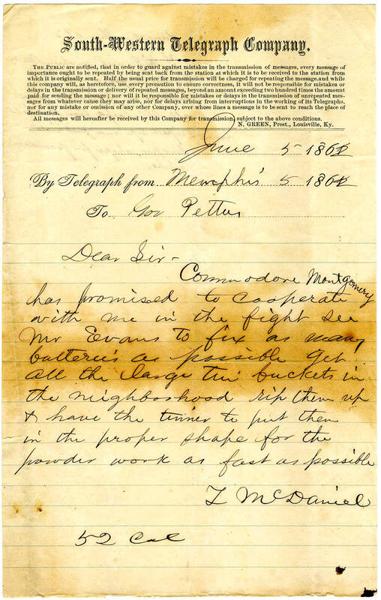 South-Western Telegraph Company.
THE PUBLIC are notified, that in order to guard against mistakes in the transmission of messages, every message of
importance ought to be repeated by being sent back from the station at which it is to be received to the station from
which it is originally sent. Half the usual price for transmission will be charged for repeating the message, and while
this company will, as heretofore, use every precaution to ensure correctness, it will not be responsible for mistakes or
delays in the transmission or delivery of repeated messages, beyond an amount exceeding two hundred times the amount
paid for sending the message; nor will it be responsible for mistakes or delays in the transmission of unrepeated messages
from whatever cause they may arise, nor for delays arising from interruptions in the working of its Telegraphs,
nor for any mistake or omission of any other Company, over whose lines a message is to be sent to reach the place of
destination.
All messages will hereafter be received by this Company for transmission, subject to the above conditions.
N. GREEN, Prest., Louisville, Ky.
June 5 1862
By Telegraph from Memphis 5 1862
To Gov Pettus
Dear Sir-
Commodore Montgomery
has promised to cooperate
with me in the fight see
Mr Evans to fix as many
batteries as possible Get
all the large tin buckets in
the neighborhood rip them up
& have the tinner to put them
in the proper shape for the
powder work as fast as possible
Z McDaniel
52 Col